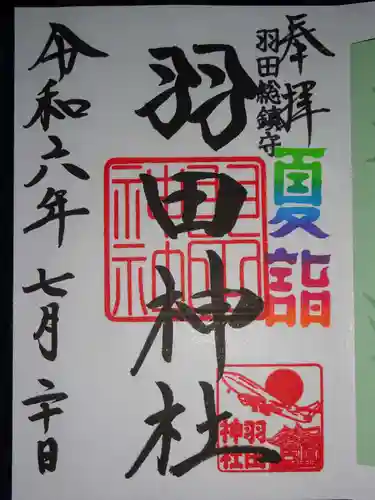 奉拝
羽田総鎮守
夏詣
羽田神社
羽田神社
羽田神社
令和六年 七月 二十日